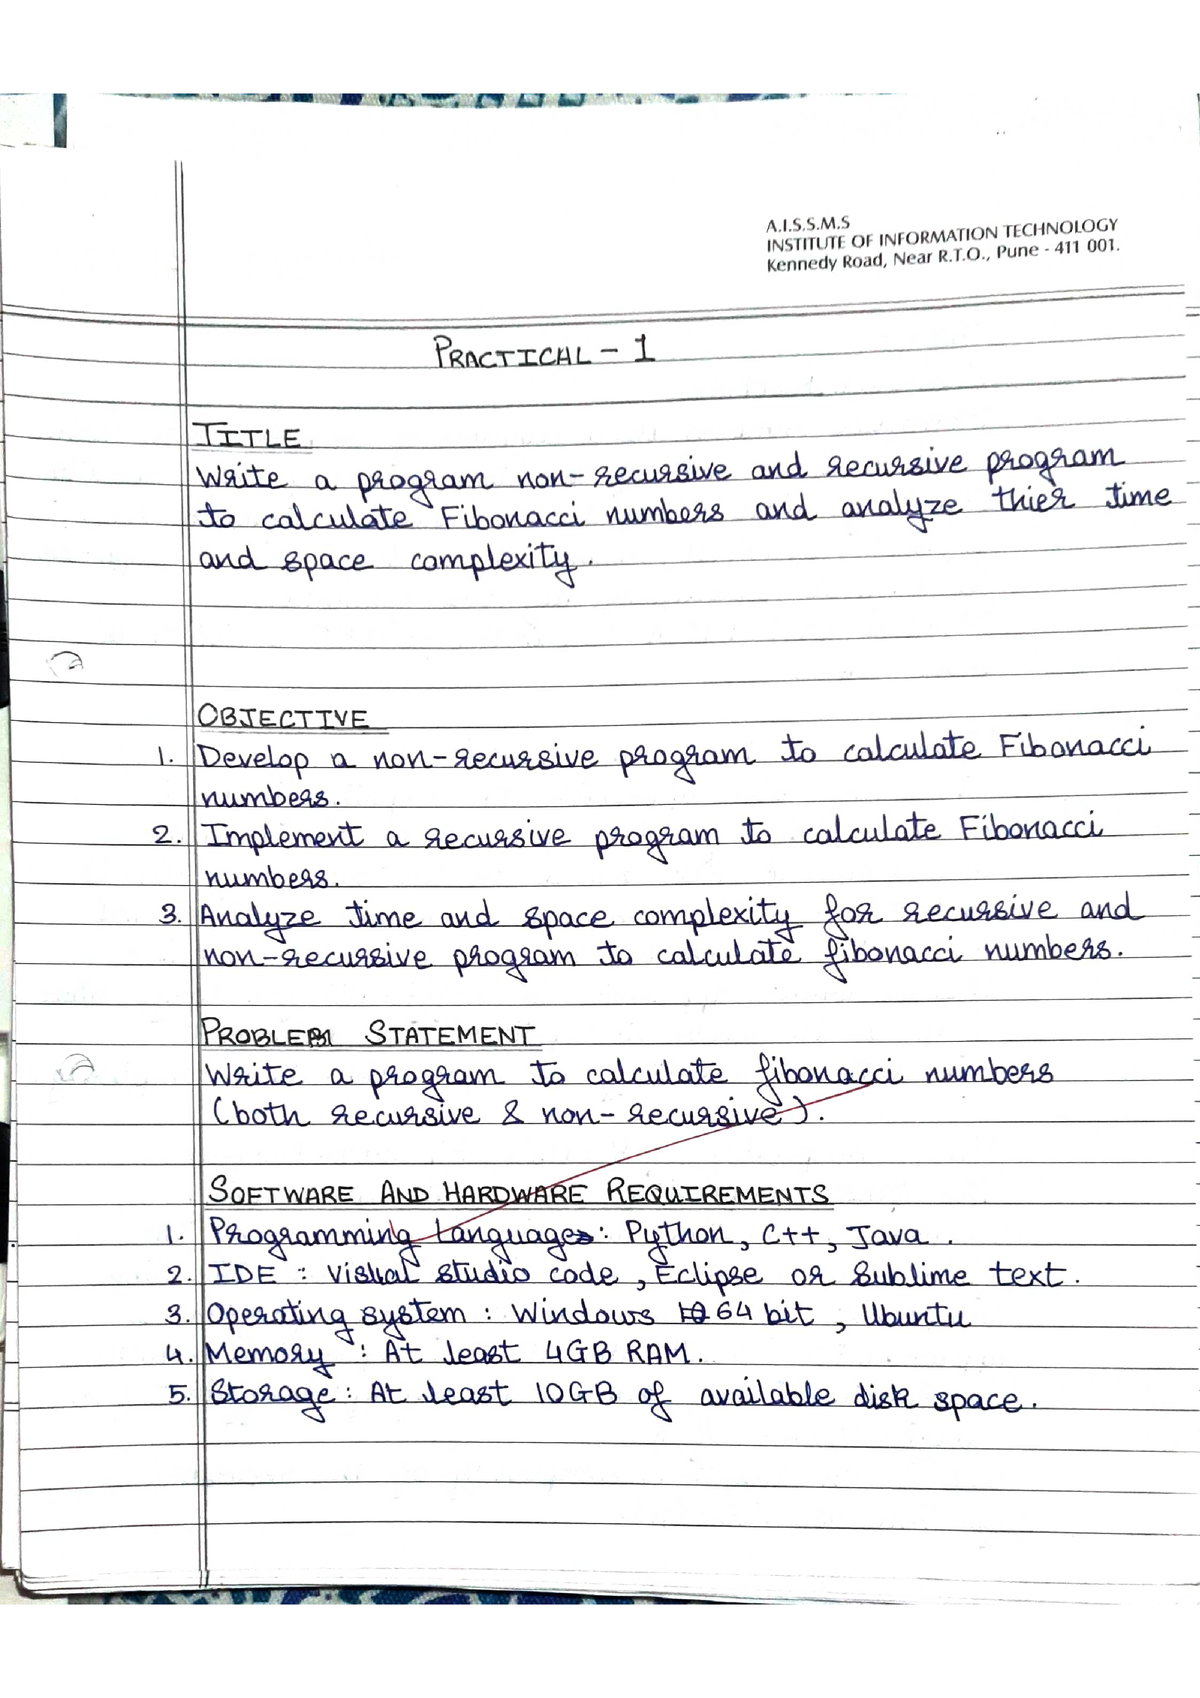 A.I.S.S.M.S
INSTITUTE OF INFORMATION TECHNOLOGY
Kennedy Road, Near R.T.O., Pune - 411 001.
PRACTICAL - 1
TITLE
Write a program non-recursive and recursive program
to calculate Fibonacci numbers and analyze thier time
and space complexity.
OBJECTIVE
1. Develop a non-recursive program to calculate Fibonacci
numbers.
2. Implement a recursive program to calculate Fibonacci
numbers.
3. Analyze time and space complexity for recursive and
non-recursive program to calculate fibonacci numbers.
PROBLEM STATEMENT
Write a program to calculate fibonacci numbers
(both recursive & non-recursive).
SOFTWARE AND HARDWARE REQUIREMENTS
1. Programming Languages: Python, C++, Java.
2. IDE : Visual studio code, Eclipse or Sublime text.
3. Operating system : Windows 64 bit, Ubuntu
4. Memory : At least 4GB RAM.
5. Storage : At least 10GB of available disk space.